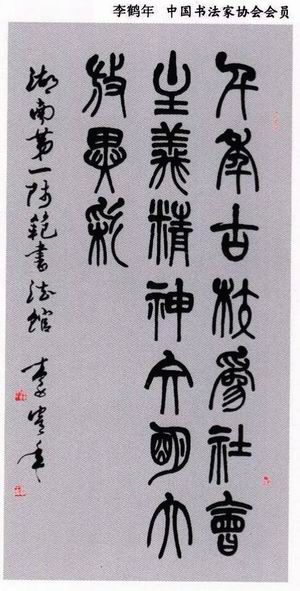 李鹤年 中国书法家协会会员
千年古校為社會
主義精神文明大
放異彩
湖南第一師範書法館 李鶴年